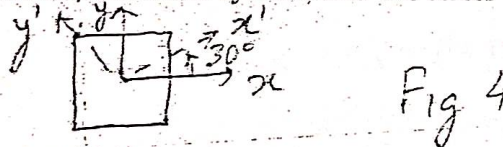 y' y x'
30°
x
Fig 4